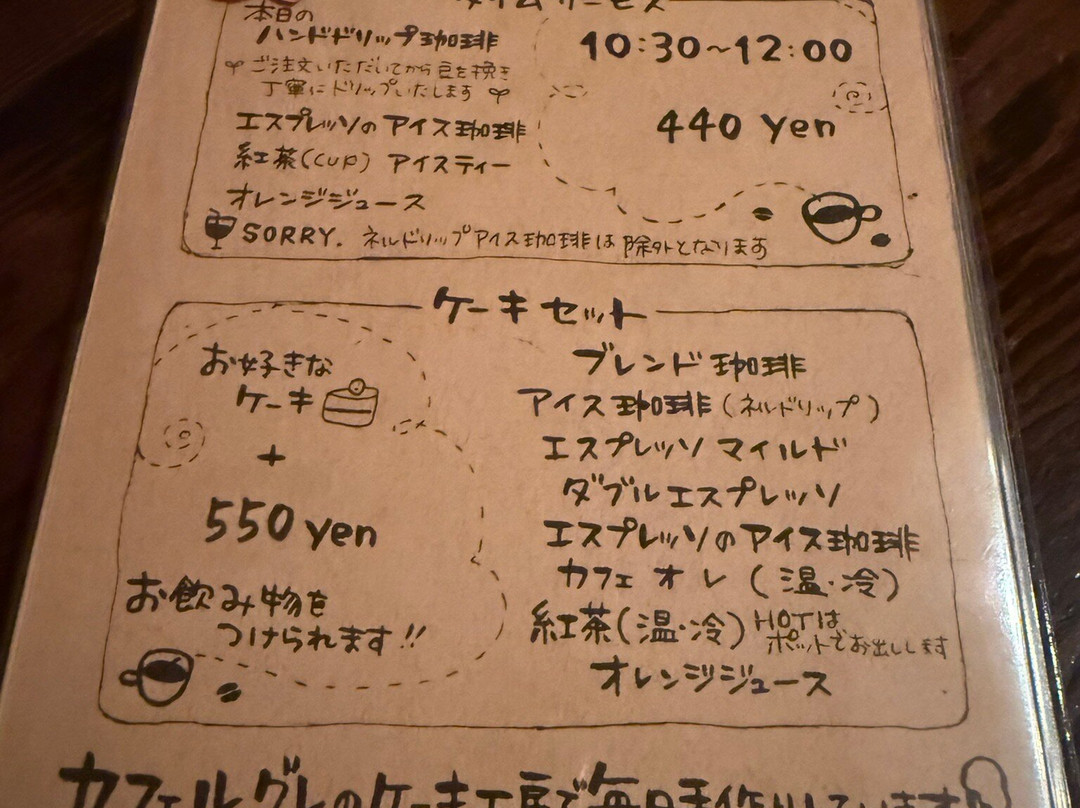 タイムサービス
本日の
ハンドドリップ珈琲
ご注文いただいてから豆を挽き
丁寧にドリップいたします
エスプレッソのアイス珈琲
紅茶(cup) アイスティー
オレンジジュース
10:30~12:00
440 yen
SORRY. ネルドリップアイス珈琲は除外となります
ケーキセット
お好きな
ケーキ
+
550 yen
お飲み物を
つけられます!!
ブレンド珈琲
アイス珈琲(ネルドリップ)
エスプレッソマイルド
ダブルエスプレッソ
エスプレッソのアイス珈琲
カフェオレ(温・冷)
紅茶(温・冷) HOTは
ポットでお出しします
オレンジジュース
カフェ ル グレのケーキ工房で毎日手作りしています